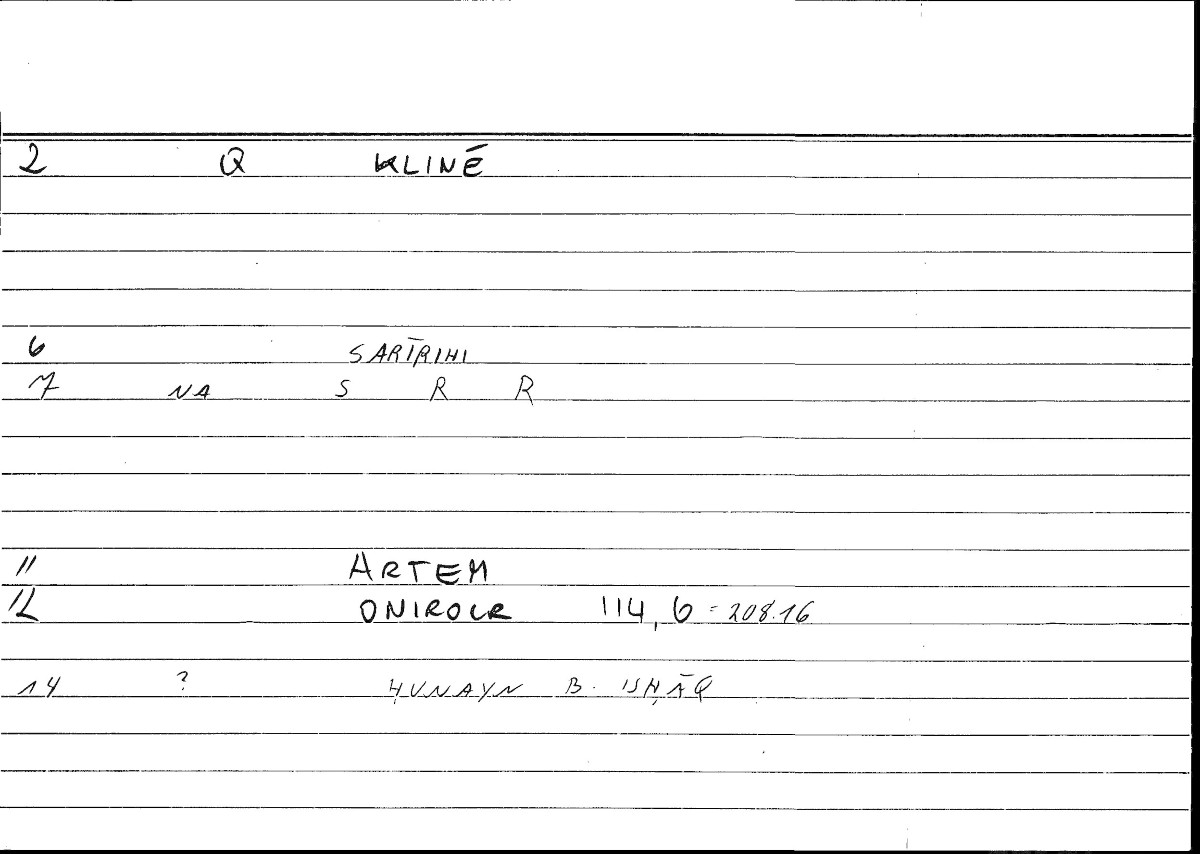 2 Q KLINĒ
6 SARĪRIHI
7 NA S R R
11 ARTEM
12 ONIROCR 114,6 = 208.16
14 ? ḤUNAYN B. ISḤĀQ